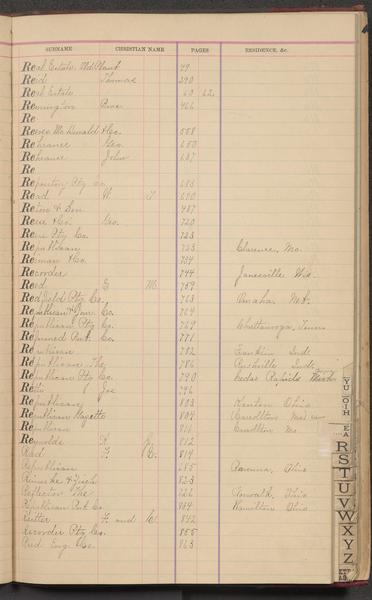 SURNAME CHRISTIAN NAME PAGES RESIDENCE, &c.
Real Estate Old Plant 49
Reid Thomas 390
Real Estate 60 62
Remington Bros 466
Re
Reese McDonald & Co. 558
Rehrauer Geo. 650
Rehrauer John 687
Re
Repository Ptg Co. 683
Read W. T. 690
Reton & Son 487
Reese & Co. Geo. 720
Ptg Co. 723
Republican 723 Clarence, Mo.
Reiman & Co. 704
Recorder 744 Janesville Wis.
Reed G. M. 759
Red Ptg Co. 763 Omaha
Republican & Co. 764
Republican Ptg Co. 769 Chattanooga, Tenn
Reformed Pub. Co. 771
Republican 782 Franklin Ind.
Republican The 786 Rushville Ind.
Republican Ptg Co. 790 Cedar Rapids
Joe 796
Republican 803 Kenton Ohio
Republican Gazette 804 Carrollton
Republican 810 Carrollton Mo
Reynolds 812
Read F. G. 814
Republican 685 Ohio
823
Reflector The 826 Norwalk, Ohio
Republican Pub Co. 834 Hamilton Ohio
Reitter F. and C. 842
Recorder Ptg Co. 855
Reid Eng. Co. 863
R
S
T
U
V
W
X
Y
Z